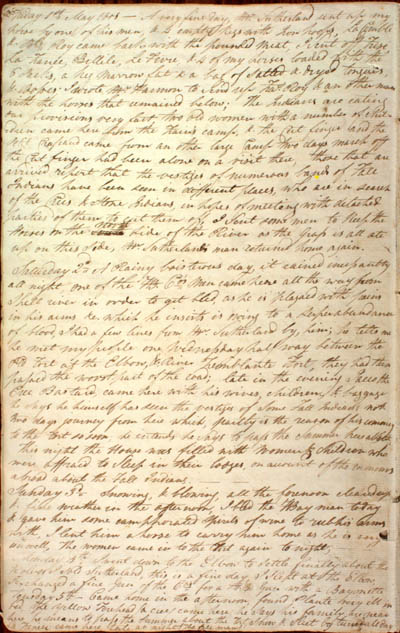 Friday 1st May 1801 — A very fine day, Mr. Sutherland sent up my
horse by one of his men, & 2 empty Kegs with Iron hoops,
Roy came back with the pounded meat, I sent off
La France, Bellile, Le Fevre, & 4 of my horses loaded with the
Packs, a keg marrow fat & a bag of Salted & dryed tongues,
& I wrote Mr. Harmon to send up Fat. Roy & an other man
with the horses that remained below; The Indians are eating
our provisions very fast, two old women with a number of chil-
dren came here from the Plains camp, & the Cut finger and the
came from an other large camp two days march off
the Cut finger had been alone on a visit there, those that are
arrived report that the vestiges of numerous bands of Fall
Indians have been seen in different places, who are in search
of the Crees & Stone Indians, in hopes of meeting with detached
parties of them to cut them off, I sent some men to keep the
Horses on the North side of the River as the grass is all ate
up on this side, Mr. Sutherlands man returned home again.
Saturday 2d A Rainy boisterous day, it rained incessantly
all night one of the HB Co's Men came here all the way from
Shell river in order to get bled, as he is plagued with pains
in his arms &c which he insists is owing to a superabundance
of blood, I had a few lines from Mr. Sutherland by him; he tells me
he met my people one Wednesday half way between the
old Fort at the Elbow, & River Tremblante Fort, they had then
passed the worst part of the road, late in the evening
Cree Bastard came here with his wives, children, & baggage
he says he himself has seen the vestiges of some Fall Indians not
two days journey from here which, possibly is the reason of his coming
to the Fort so soon he intends he says to pass the summer hereabouts
this night the House was filled with Women & children who
were affraid to sleep in their lodges, on account of the rumours
spread about the Fall Indians.
Sunday 3d. Snowing & blowing all the forenoon cleared up
to fine weather in the afternoon, I bled the HBay man today
& gave him some camphorated spirits of wine to rub his arms
with, I lent him a horse to carry him home as he is very
unwell, the women came in to the Fort again to night;
Monday 4th I went down to the Elbow to settle finally about the
with Sutherland, this is a fine day, I slept at the Elbow,
Exchanged a fine piece of the
Tuesday 5th — Came home in the afternoon, found Plante very ill in
bed, The Yellow Forehead a Cree came here, he says his family
he means to pass the summer about the
came here